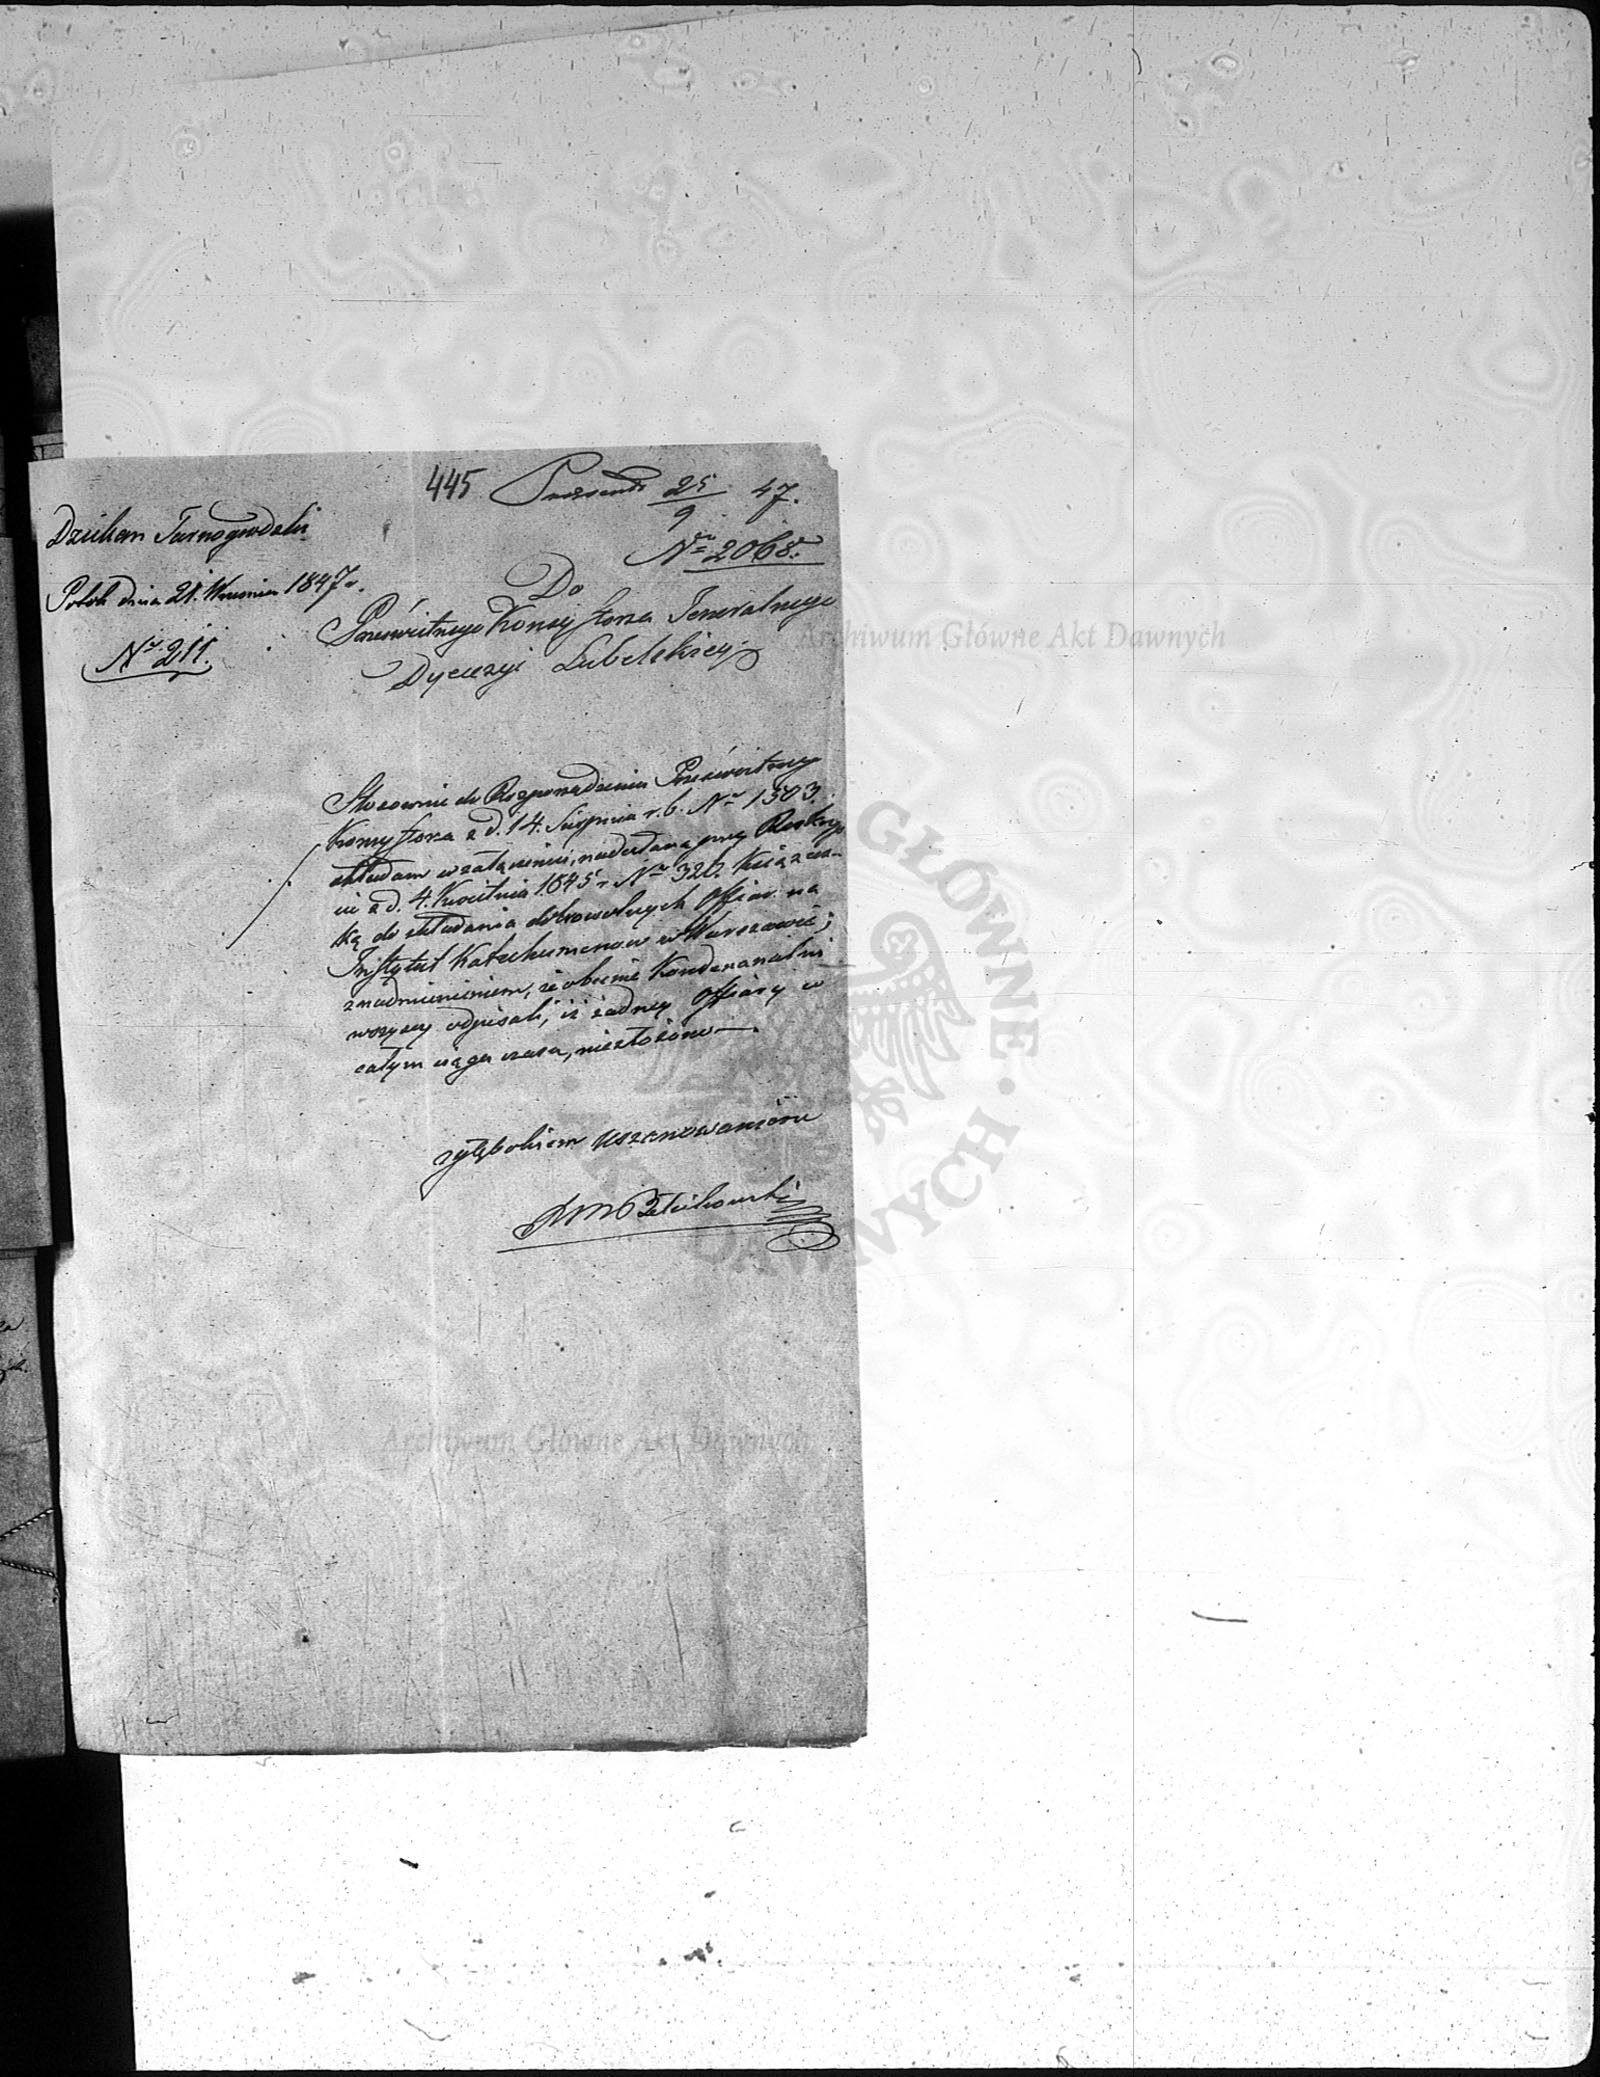 445 Praesent. 25/9 47.
Nr 2068.
Dziekan Tarnogrodzki
Potok dnia 21. Września 1847 r.
Nr 211.
Do
Prześwietnego Konsystorza Jeneralnego
Dyecezyi Lubelskiej
Stosownie do Rozporządzenia Prześwietnego
Konsystorza z d. 14. Sierpnia r. b. Nr 1503.
składam w załączeniu, nadesłaną przy Reskryp
cie z d. 4. Kwietnia 1845 r. Nr 320. Książecz-
kę do składania dobrowolnych Offiar na
Instytut Katechumenów w Warszawie;
z nadmienieniem, że obecnie Kondekanalni
wszyscy odpisali, iż żadney Offiary w
całym ciągu czasu, niezłożono.
z głębokiem uszanowaniem
Archiwum Główne Akt Dawnych
Archiwum Główne Akt Dawnych
GŁÓWNE AKT DAWNYCH